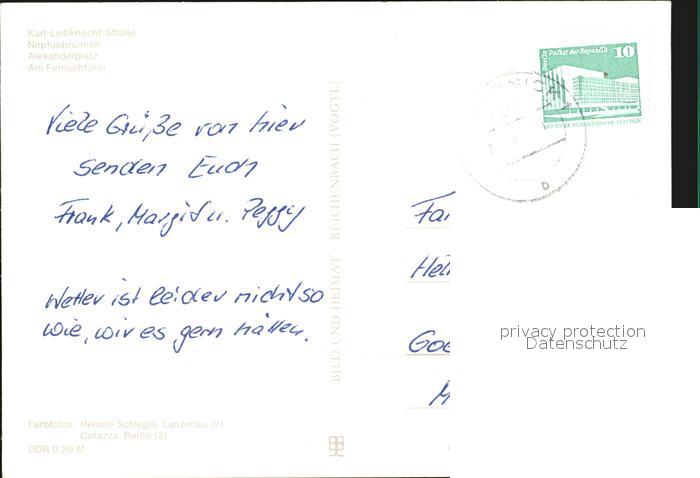 Karl-Liebknecht-Straße
Neptunbrunnen
Alexanderplatz
Am Fernsehturm
Berlin Palast der Republik 10
DEUTSCHE DEMOKRATISCHE REPUBLIK
Viele Grüße von hier
senden Euch
Frank, Margit u. Peggy
Wetter ist leider nicht so
wie, wir es gern hätten.
BILD UND HEIMAT REICHENBACH (VOGTL)
Fa
Hei
Goe
M
privacy protection
Datenschutz
Farbfotos: Renate Schlegel, Lunzenau (2)
Corazza, Berlin (2)
DDR 0.20 M